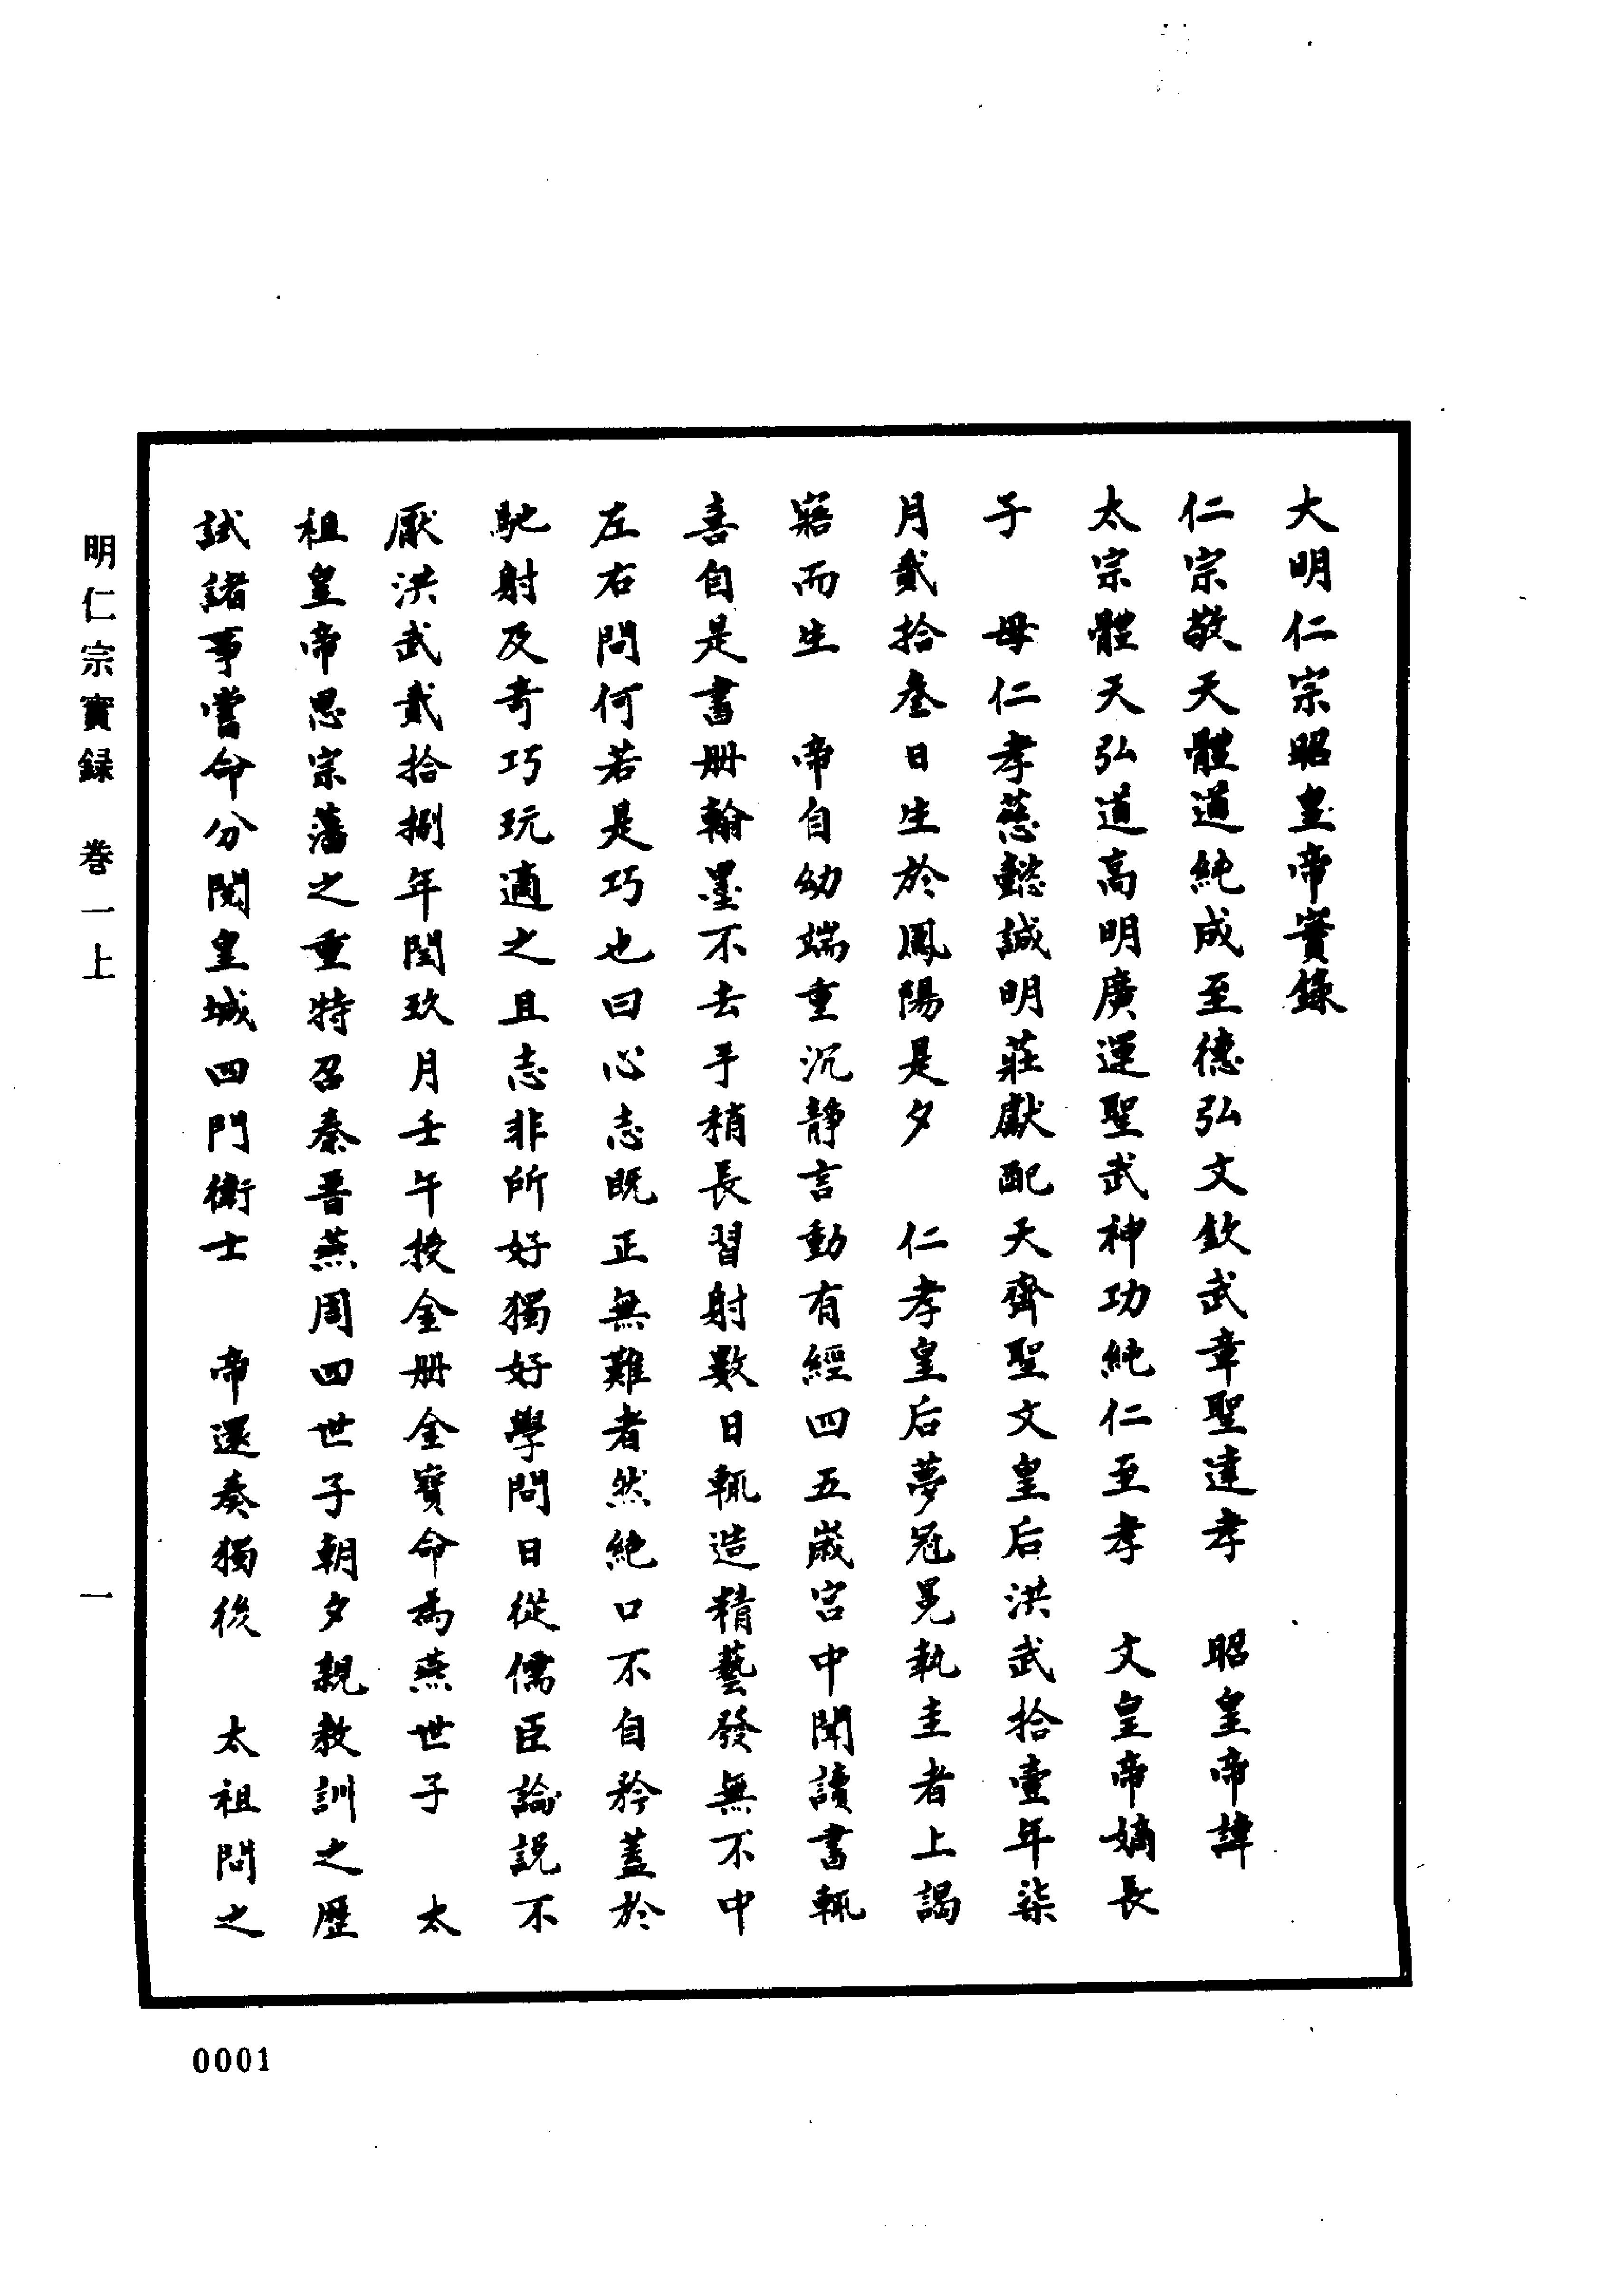 大明仁宗昭皇帝實錄
仁宗敬天體道純成至德弘文欽武章聖達孝　昭皇帝諱
太宗體天弘道高明廣運聖武神功純仁至孝　文皇帝嫡長
子　母仁孝慈懿誠明莊獻配天齊聖文皇后洪武拾壹年柒
月貳拾叄日生於鳳陽是夕　仁孝皇后夢冠冕執圭者上謁
寤而生　帝自幼端重沉靜言動有經四五歲宮中聞讀書輒
喜自是書册翰墨不去手稍長習射數日輒造精藝發無不中
左右問何若是巧也曰心志既正無難者然絶口不自矜蓋於
馳射及奇巧玩適之且志非所好獨好學問日從儒臣論説不
厭洪武貳拾捌年閏玖月壬午授金册金寶命爲燕世子　太
祖皇帝思宗藩之重特召秦晉燕周四世子朝夕親教訓之歷
試諸事嘗命分閱皇城四門衛士　帝還奏獨後　太祖問之
明仁宗實録　卷一上
一
0001